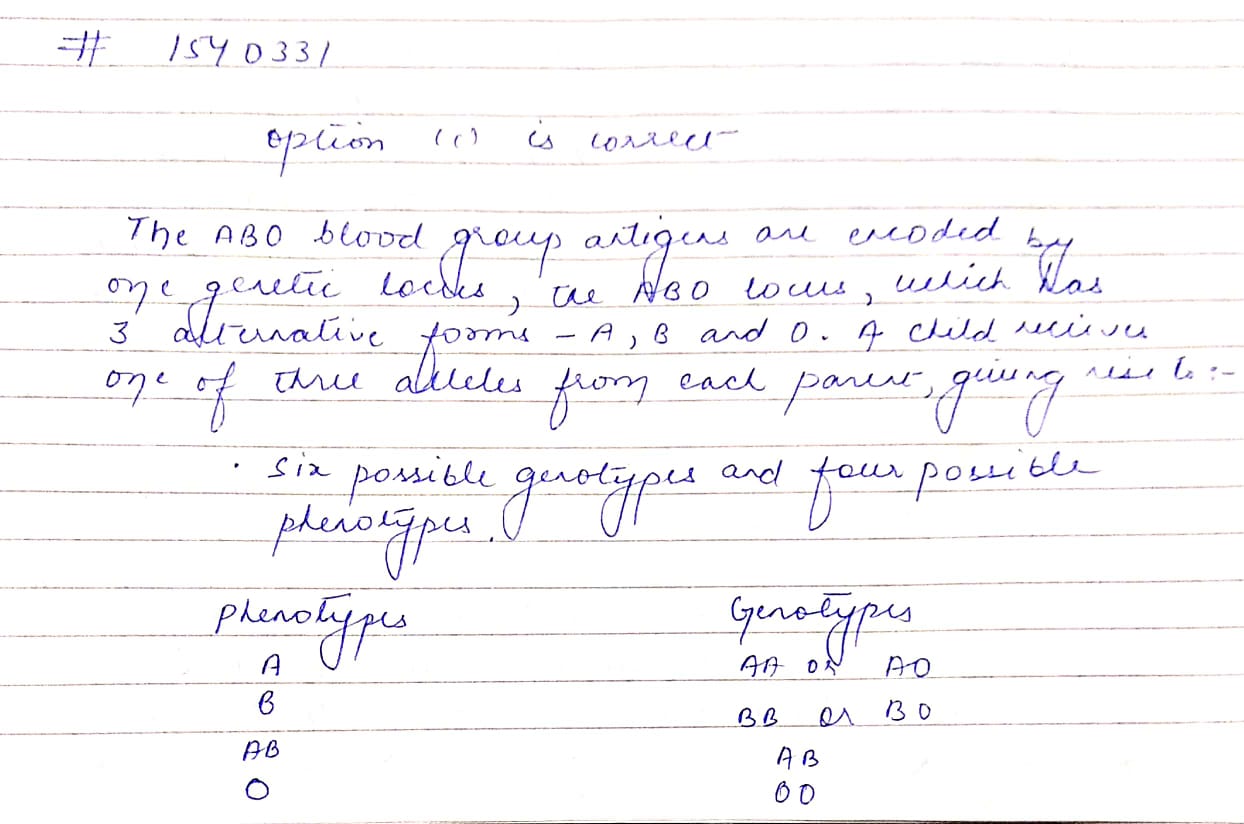 # 1540331
option (c) is correct
The ABO blood group antigens are encoded by
one genetic locus, the ABO locus, which has
3 alternative forms - A, B and O. A child receives
one of three alleles from each parent, giving rise to :-
· six possible genotypes and four possible
phenotypes.
Phenotypes Genotypes
A AA or AO
B BB or BO
AB AB
O OO